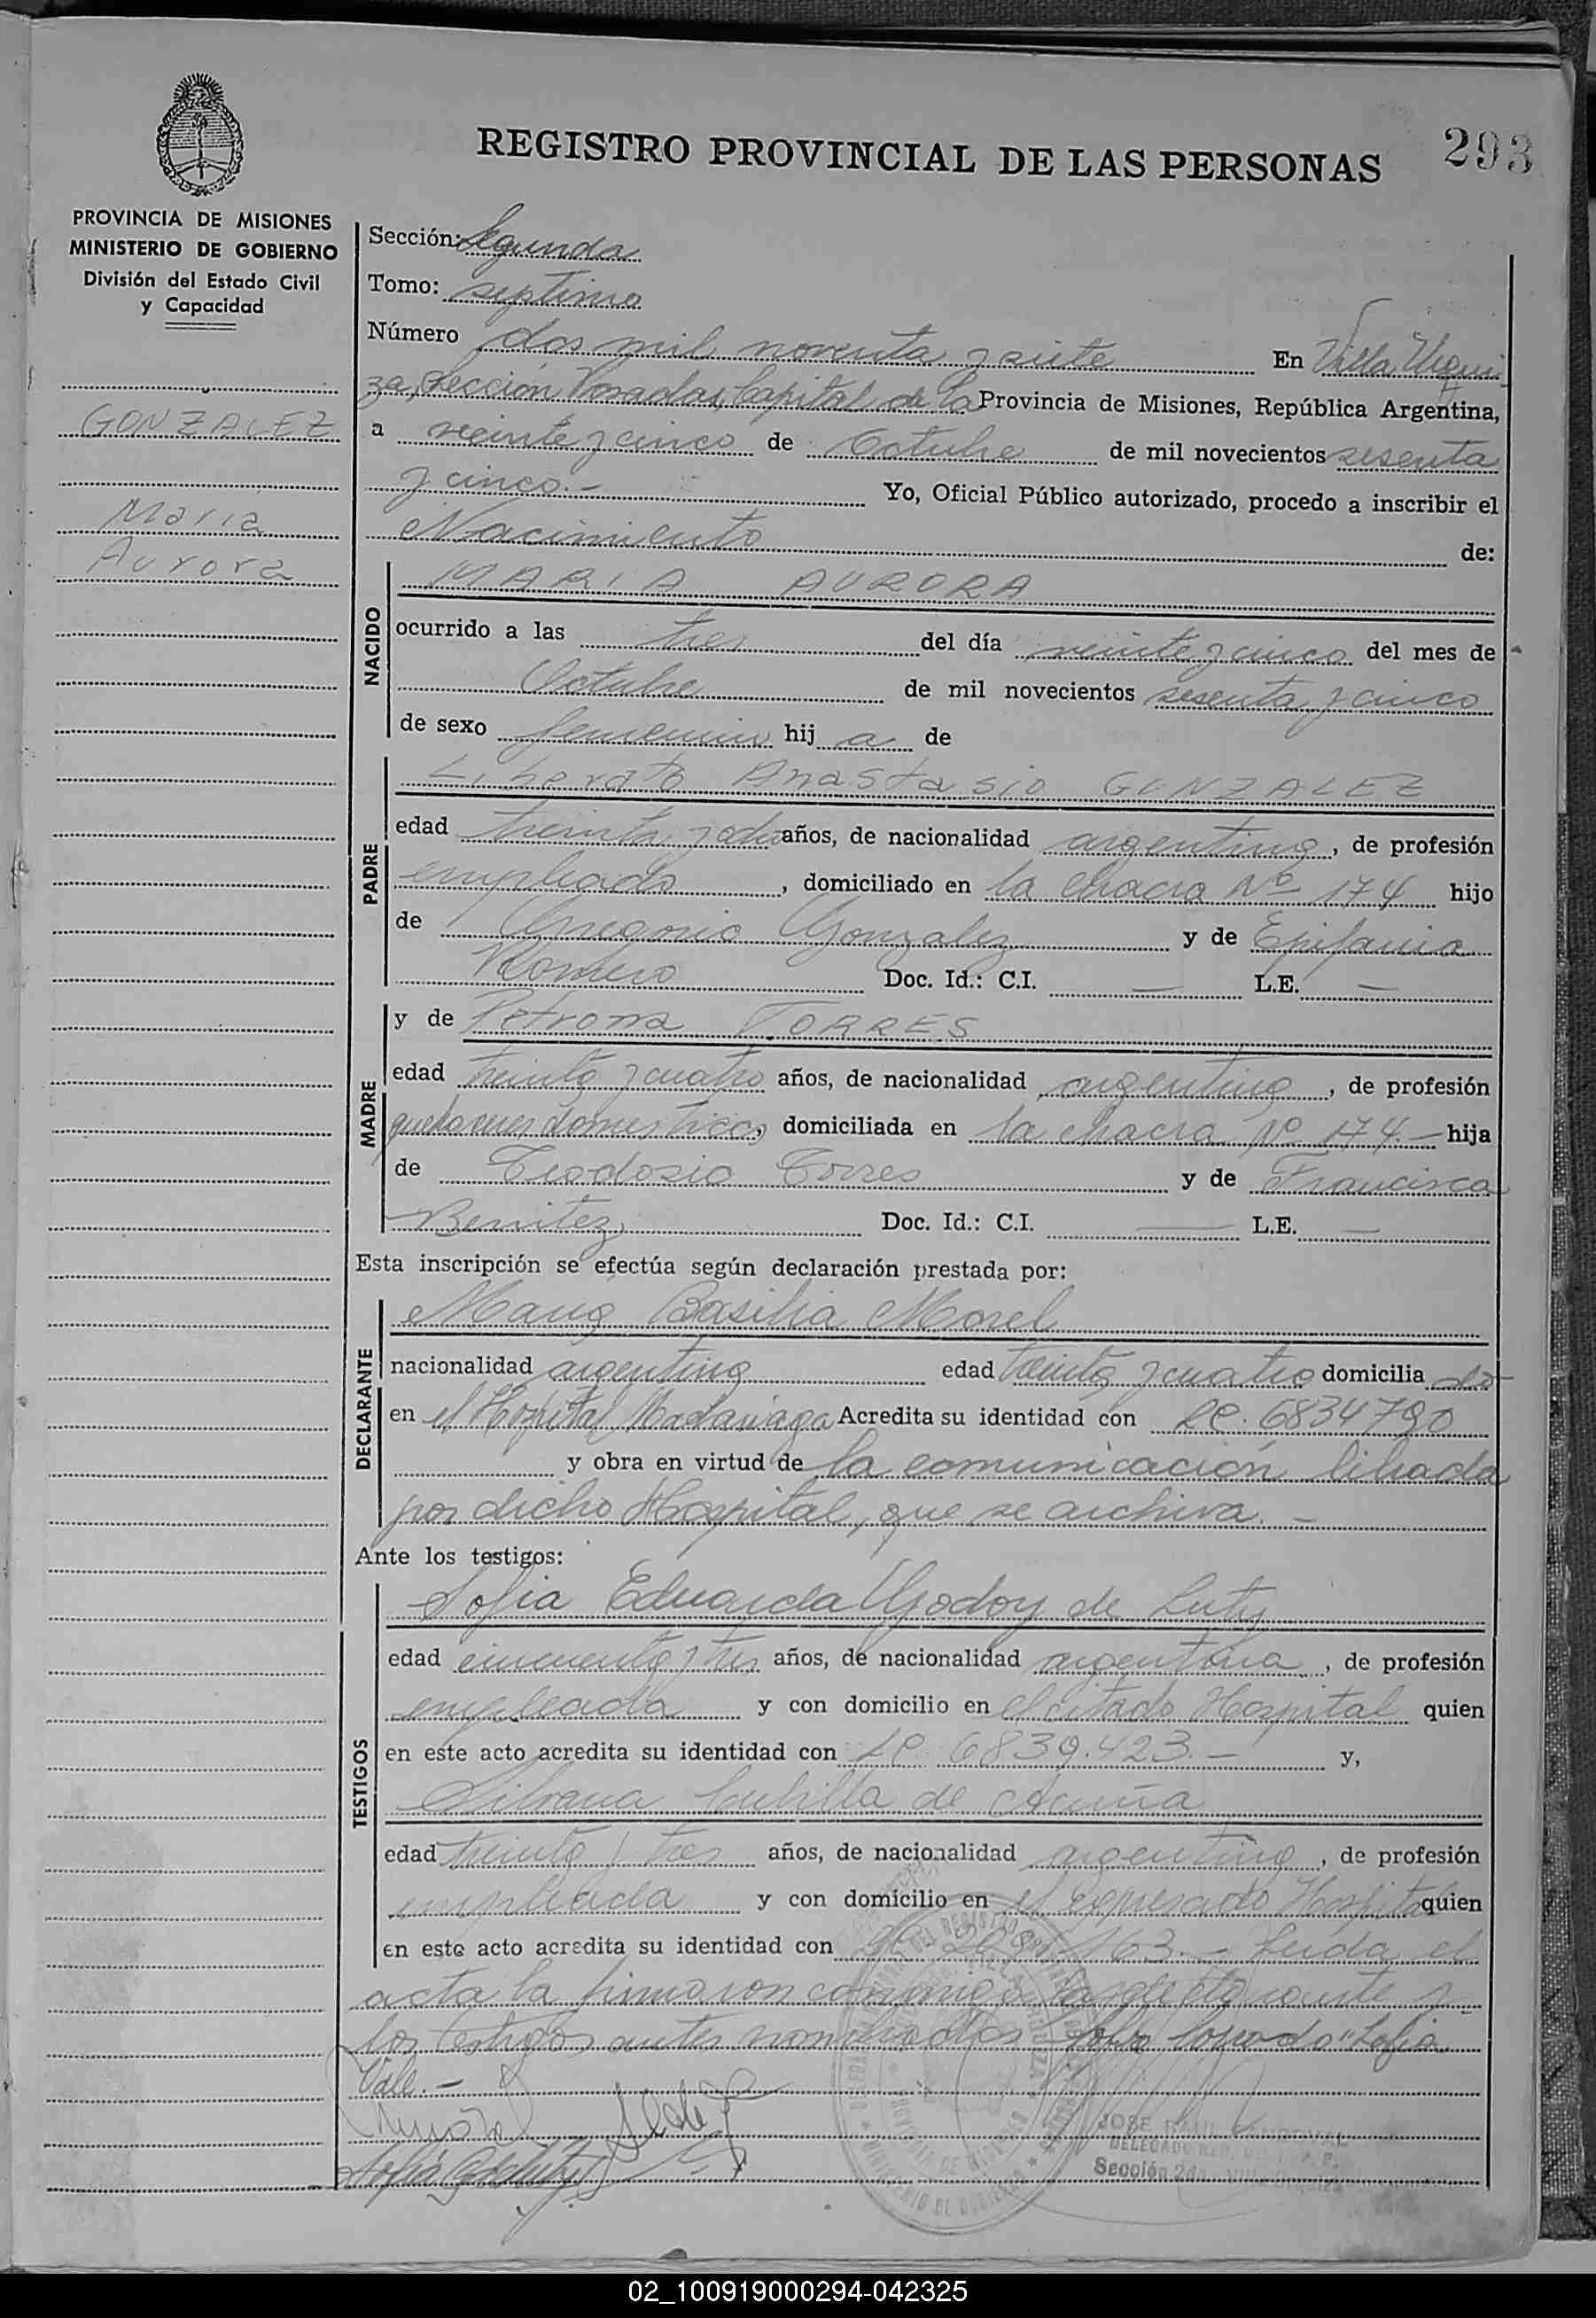 REGISTRO PROVINCIAL DE LAS PERSONAS
293
PROVINCIA DE MISIONES
MINISTERIO DE GOBIERNO
División del Estado Civil
y Capacidad
GONZALEZ
Maria
Aurora
Sección: Segunda
Tomo: septimo
Número dos mil noventa y siete En Villa Urqui-
za, Sección Posadas, Capital de la Provincia de Misiones, República Argentina,
a veinte y cinco de Octubre de mil novecientos sesenta
y cinco.- Yo, Oficial Público autorizado, procedo a inscribir el
Nacimiento de:
NACIDO
MARIA AURORA
ocurrido a las tres del día veinte y cinco del mes de
Octubre de mil novecientos sesenta y cinco
de sexo femenino hij a de
PADRE
Liberato Anastasio GONZALEZ
edad treinta y ocho años, de nacionalidad argentina, de profesión
empleado, domiciliado en la chacra Nº 174 hijo
de Gregorio Gonzalez y de Epifania
Romero Doc. Id.: C.I. — L.E. —
MADRE
y de Petrona TORRES
edad treinta y cuatro años, de nacionalidad argentina, de profesión
quehaceres domesticos, domiciliada en la chacra Nº 174.- hija
de Teodosio Torres y de Francisca
Benitez, Doc. Id.: C.I. — L.E. —
Esta inscripción se efectúa según declaración prestada por:
DECLARANTE
Maria Basilia Morel
nacionalidad argentina edad treinta y cuatro domicilia da
en el Hospital Madariaga Acredita su identidad con LC. 6834790
y obra en virtud de la comunicación librada
por dicho Hospital, que se archiva.-
Ante los testigos:
TESTIGOS
Sofia Eduarda Godoy de Luty
edad cincuenta y tres años, de nacionalidad argentina, de profesión
empleada y con domicilio en el citado Hospital quien
en este acto acredita su identidad con LC 6839.423.- y,
Silvana Cubilla de Acuña
edad treinta y tres años, de nacionalidad argentina, de profesión
empleada y con domicilio en el expresado Hospital quien
en este acto acredita su identidad con 163.- Leida el
acta la firmaron conmigo la declarante y
los testigos antes nombrados Sobre borrado "Sofia
Vale.-
JOSE RAUL SANDOVAL
DELEGADO
Sección 2da. Villa Urquiza
02_100919000294-042325